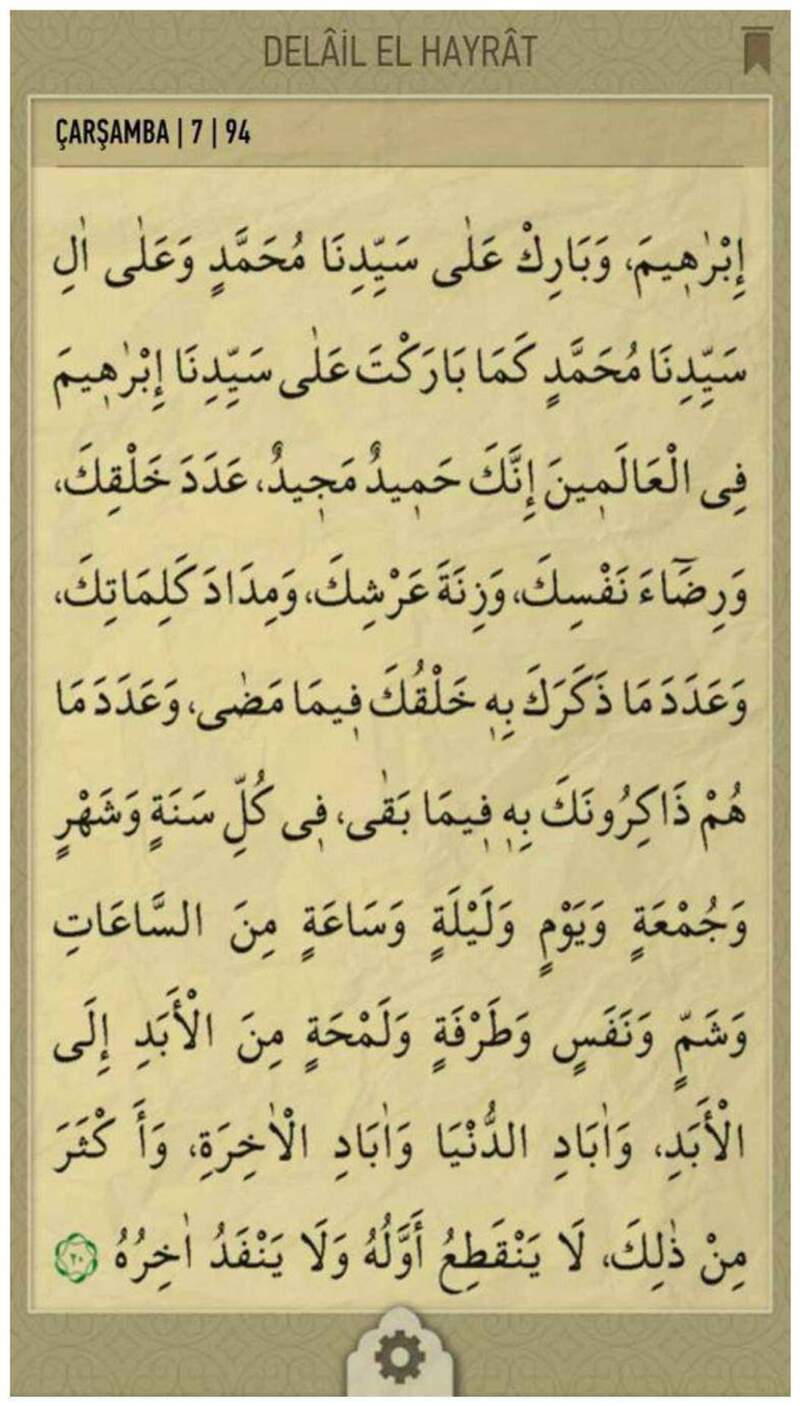 DELÂİL EL HAYRÂT
ÇARŞAMBA | 7 | 94
إِبْرٰهٖيمَ، وَبَارِكْ عَلٰى سَيِّدِنَا مُحَمَّدٍ وَعَلٰى اٰلِ
سَيِّدِنَا مُحَمَّدٍ كَمَا بَارَكْتَ عَلٰى سَيِّدِنَا إِبْرٰهٖيمَ
فِى الْعَالَمٖينَ إِنَّكَ حَمٖيدٌ مَجٖيدٌ، عَدَدَ خَلْقِكَ،
وَرِضَٓاءَ نَفْسِكَ، وَزِنَةَ عَرْشِكَ، وَمِدَادَ كَلِمَاتِكَ،
وَعَدَدَ مَا ذَكَرَكَ بِهٖ خَلْقُكَ فٖيمَا مَضٰى، وَعَدَدَ مَا
هُمْ ذَاكِرُونَكَ بِهٖ فٖيمَا بَقٰى، فٖى كُلِّ سَنَةٍ وَشَهْرٍ
وَجُمْعَةٍ وَيَوْمٍ وَلَيْلَةٍ وَسَاعَةٍ مِنَ السَّاعَاتِ
وَشَمٍّ وَنَفَسٍ وَطَرْفَةٍ وَلَمْحَةٍ مِنَ الْأَبَدِ إِلَى
الْأَبَدِ، وَاٰبَادِ الدُّنْيَا وَاٰبَادِ الْاٰخِرَةِ، وَأَكْثَرَ
مِنْ ذٰلِكَ، لَا يَنْقَطِعُ أَوَّلُهُ وَلَا يَنْفَدُ اٰخِرُهُ ٢٠